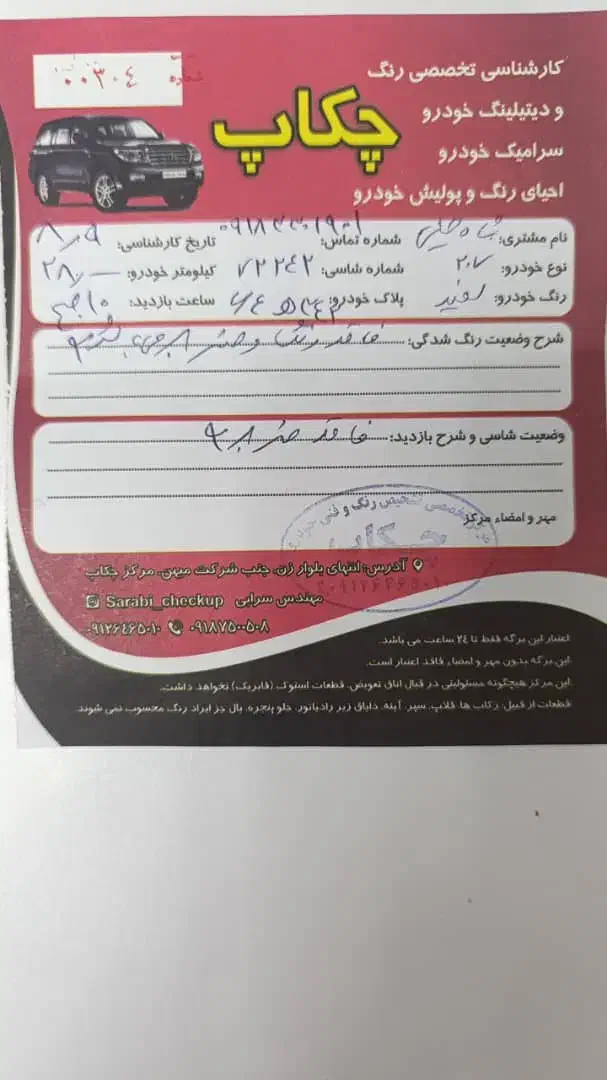 کارشناسی تخصصی رنگ
و دیتیلینگ خودرو
سرامیک خودرو
احیای رنگ و پولیش خودرو
چکاپ
شماره
۰۰۳۰۴
نام مشتری:
شماره تماس:
تاریخ کارشناسی: ۸/۹
نوع خودرو: ۲۰۷
شماره شاسی: ۷۲۲۴۲
کیلومتر خودرو: ۲۸/۰۰۰
رنگ خودرو: سفید
پلاک خودرو:
ساعت بازدید: ۱۰ صبح
شرح وضعیت رنگ شدگی: فاقد رنگ و ضربه
وضعیت شاسی و شرح بازدید: فاقد ضربه
مهر و امضاء مرکز
چکاپ
آدرس: انتهای بلوار ژن، جنب شرکت میهن، مرکز چکاپ
مهندس سرابی Sarabi_checkup
۰۹۱۸۷۵۰۰۵۰۸ ۰۹۱۲۶۴۶۵۰۱۰
اعتبار این برگه فقط تا ۲۴ ساعت می باشد.
این برگه بدون مهر و امضاء فاقد اعتبار است.
این مرکز هیچگونه مسئولیتی در قبال اتاق تعویض، قطعات استوک (فابریک) نخواهد داشت.
قطعات از قبیل: رکاب ها، قالپاق، سپر، آینه، زیر رادیاتور، جلو پنجره، بال جز ایراد رنگ محسوب نمی شوند